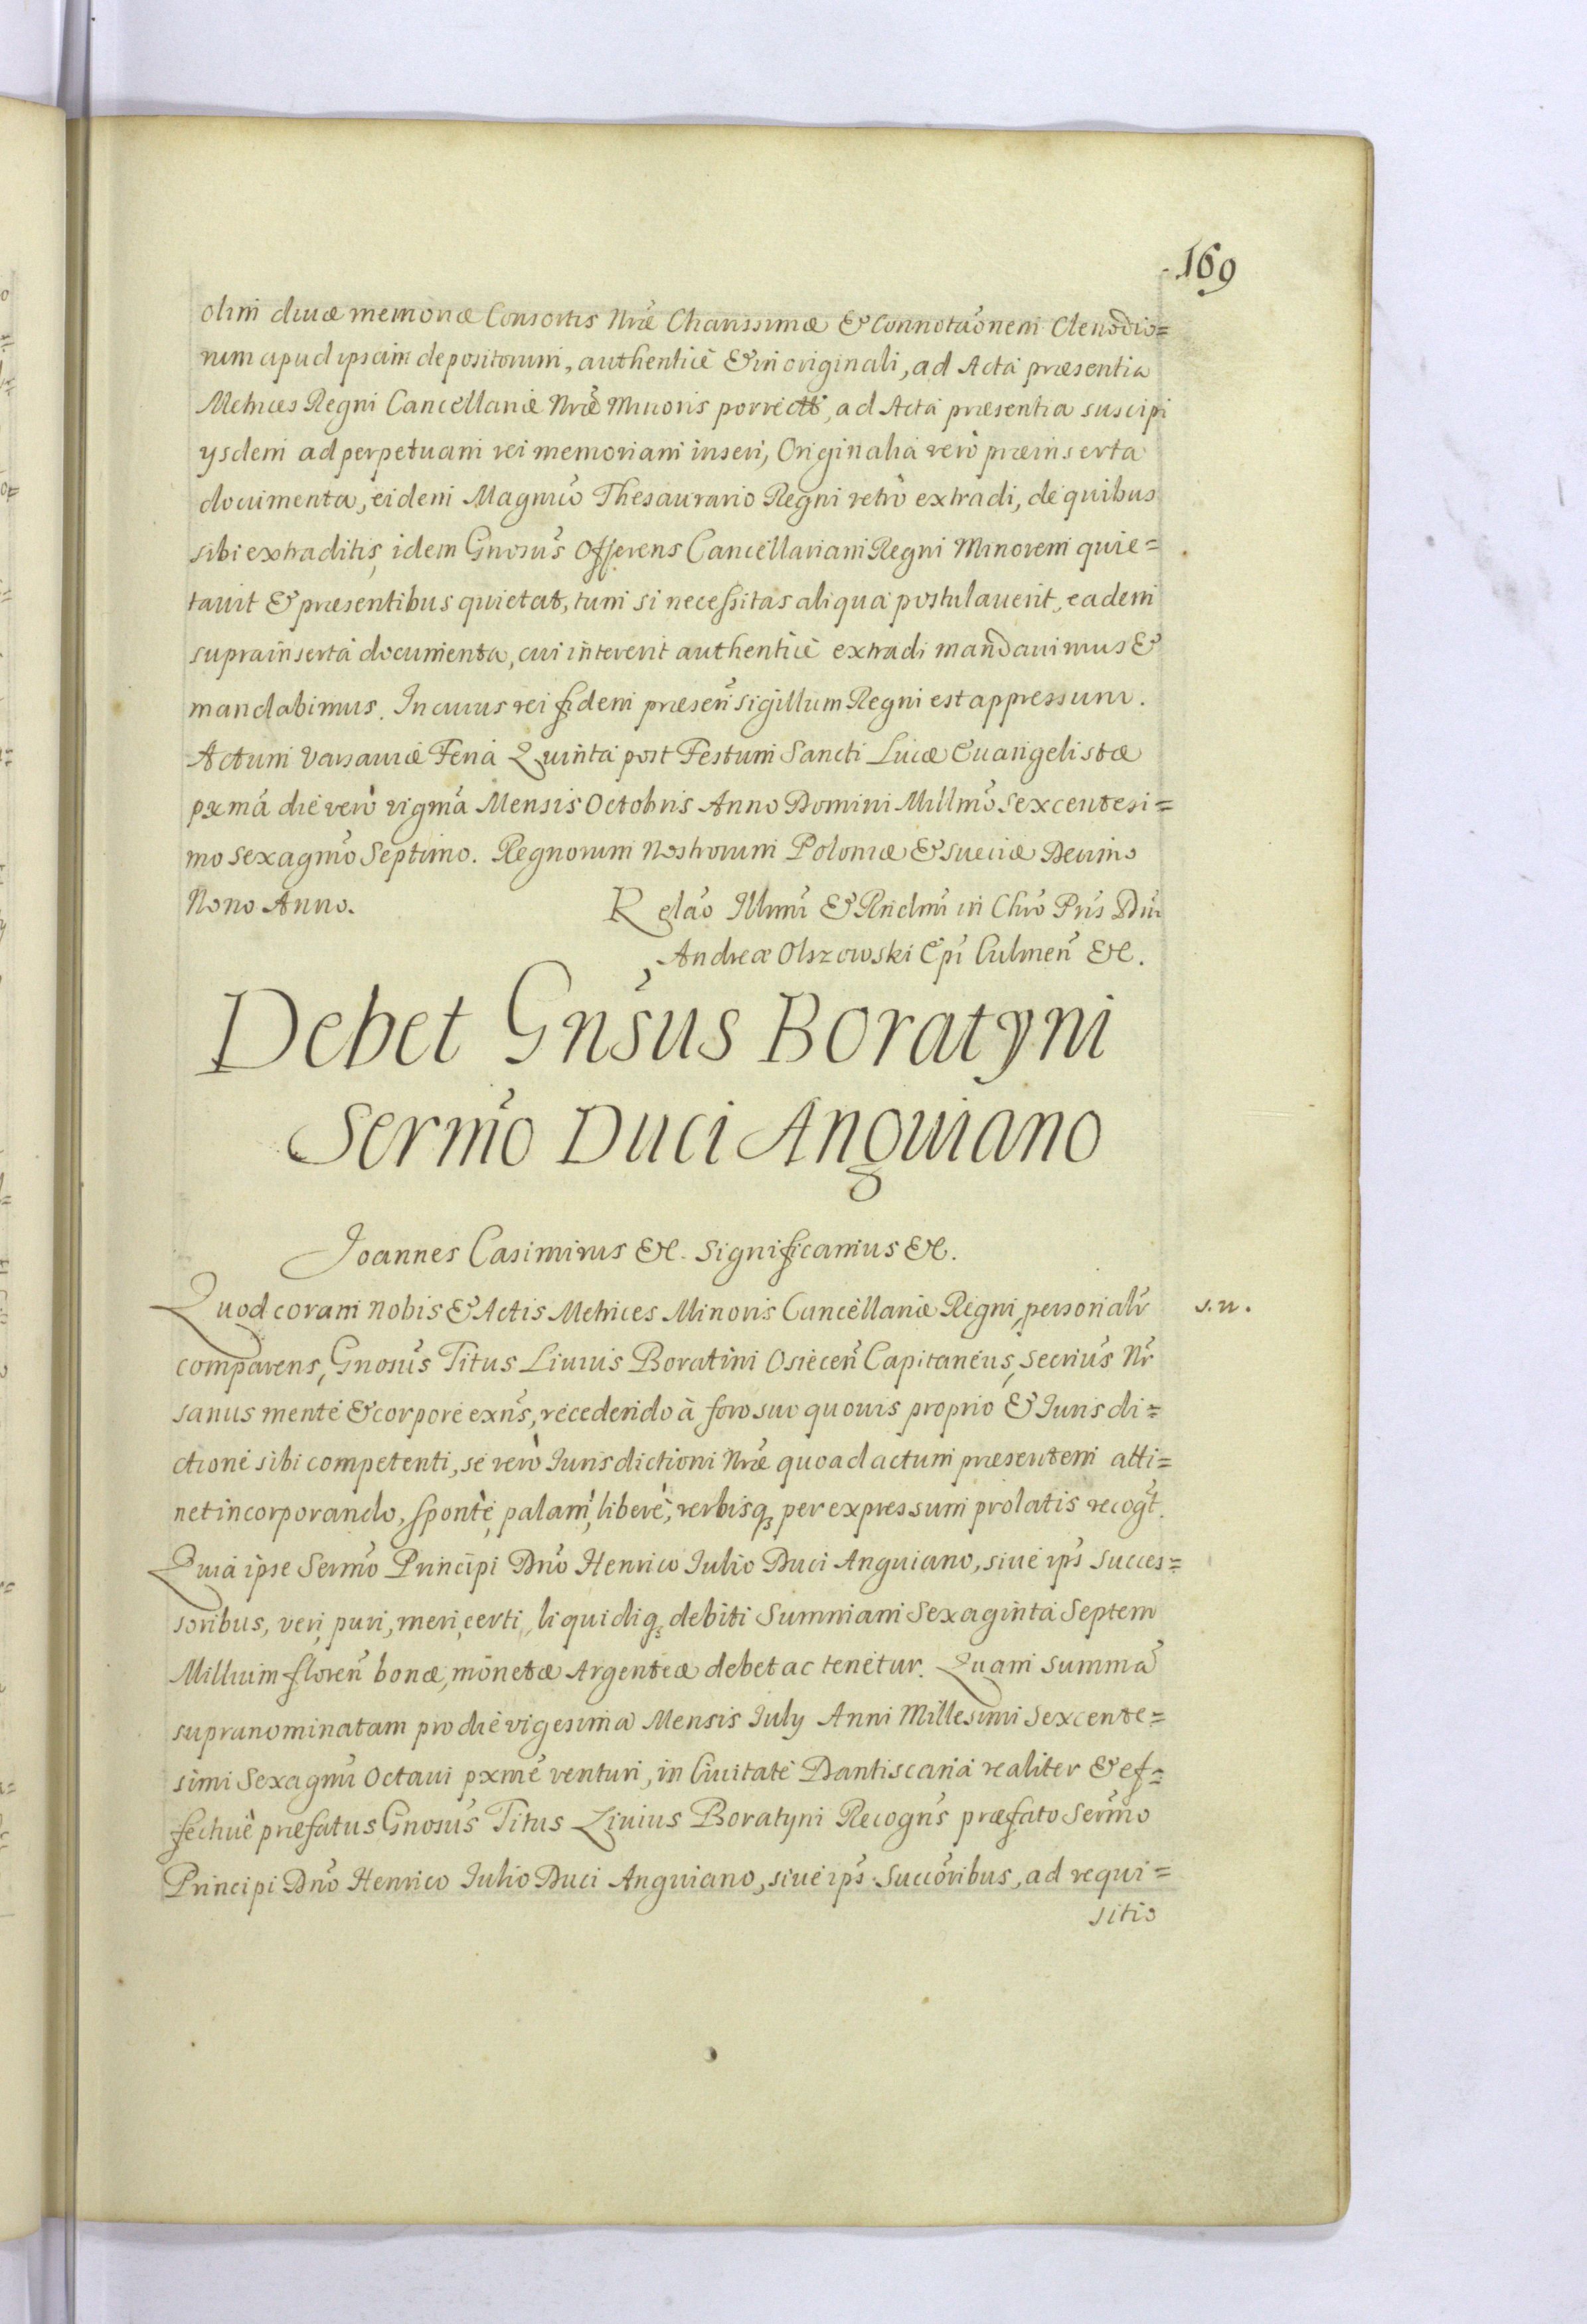 169
olim divæ memoriæ Consortis Nræ Charissimæ & Connotãonem Clenodio=
rum apud ipsam depositorum, authenticè & in originali, ad Acta præsentia
Metrices Regni Cancellariæ Nræ Minoris porrectis, ad Acta præsentia suscipi
ysdem ad perpetuam rei memoriam inseri, Originalia verò præinserta
documenta, eidem Magnico Thesaurario Regni retrò extradi, de quibus
sibi extraditis, idem Gnosus Offerens Cancellariam Regni Minorem quie=
tavit & præsentibus quietat, tum si necessitas aliqua postulaverit, eadem
suprainserta documenta, cui intererit authenticè extradi mandavimus &
mandabimus. In cuius rei fidem præsen sigillum Regni est appressum.
Actum Varsaviæ Feria Quinta post Festum Sancti Lucæ Evangelistæ
pxmã die verò vigmã Mensis Octobris Anno Domini Millmo Sexcentesi=
mo Sexagmo Septimo. Regnorum Nostrorum Poloniæ & Sueciæ Decimo
Nono Anno.
Relão Illmi & Rndmi in Chro Pris Dni
Andreæ Olszowski Epi Culmen &c.
Debet Gnsus Boratyni
Sermo Duci Anguiano
Joannes Casimirus &c. Significamus &c.
Quod coram Nobis & Actis Metrices Minoris Cancellariæ Regni, personalr
s. n.
comparens, Gnosus Titus Livius Boratini Osiecen Capitaneus, Secrius Nr
sanus mente & corpore exns, recedendo à foro suo quovis proprio & Jurisdi=
ctione sibi competenti, se verò Jurisdictioni Nræ quoad actum præsentem atti=
net incorporando, sponte, palam, liberè, verbisq per expressum prolatis recogt.
Quia ipse Sermo Principi Dno Henrico Julio Duci Anguiano, sive ips succes=
soribus, veri, puri, meri, certi, liquidiq debiti Summam Sexaginta Septem
Millium floren bonæ, monetæ Argenteæ debet ac tenetur. Quam summã
supranominatam pro die vigesima Mensis July Anni Millesimi Sexcente=
simi Sexagmi Octavi pxmè venturi, in Civitate Dantiscana realiter & ef=
fectivè præfatus Gnosus Titus Livius Boratyni Recogns præfato Sermo
Principi Dno Henrico Julio Duci Anguiano, sive ips Succoribus, ad requi=
sitio